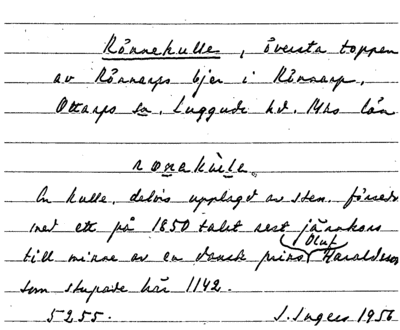 Rönnekulle, översta toppen
av Rönnarps bjer i Rönnarp,
Ottarps sn. Luggude hd. Mhs län
ronakulle.
En kulle, delvis upplagd av sten, försedd
med ett på 1850 talet rest järnkors
till minne av en dansk prins Oluf Haraldsson
som stupade här 1142.
5255. S. Ingers 1956